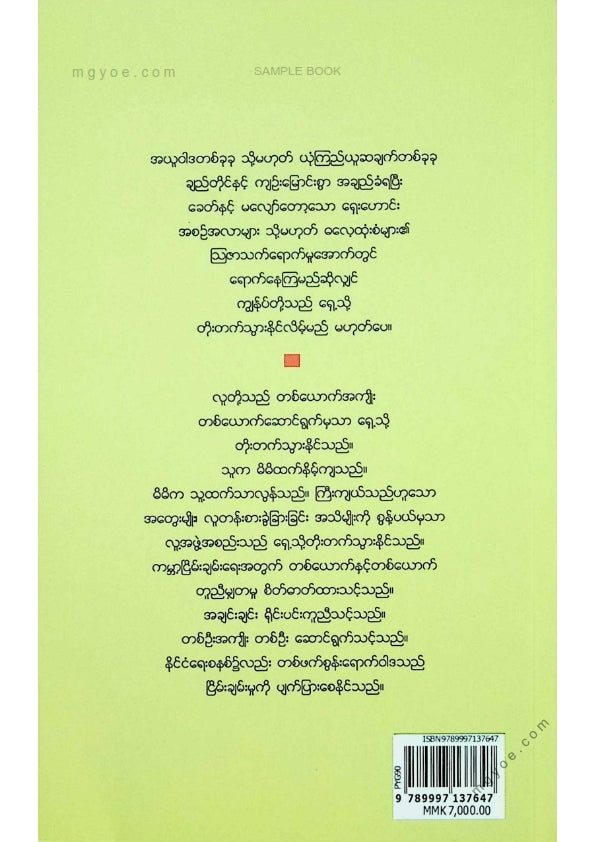 mgyoe.com
SAMPLE BOOK
အယူဝါဒတစ်ခုခု သို့မဟုတ် ယုံကြည်ယူဆချက်တစ်ခုခု
ချည်တိုင်နှင့် ကျဉ်းမြောင်းစွာ အချည်ခံရပြီး
ခေတ်နှင့် မလျော်တော့သော ရှေးဟောင်း
အစဉ်အလာများ သို့မဟုတ် ဓလေ့ထုံးစံများ၏
ဩဇာသက်ရောက်မှုအောက်တွင်
ရောက်နေကြမည်ဆိုလျှင်
ကျွန်ုပ်တို့သည် ရှေ့သို့
တိုးတက်သွားနိုင်လိမ့်မည် မဟုတ်ပေ။
လူတို့သည် တစ်ယောက်အကျိုး
တစ်ယောက်ဆောင်ရွက်မှသာ ရှေ့သို့
တိုးတက်သွားနိုင်သည်။
သူက မိမိထက်နိမ့်ကျသည်။
မိမိက သူ့ထက်သာလွန်သည်။ ကြီးကျယ်သည်ဟူသော
အတွေးမျိုး၊ လူတန်းစားခွဲခြားခြင်း အသိမျိုးကို စွန့်ပယ်မှသာ
လူ့အဖွဲ့အစည်းသည် ရှေ့သို့တိုးတက်သွားနိုင်သည်။
ကမ္ဘာ့ငြိမ်းချမ်းရေးအတွက် တစ်ယောက်နှင့်တစ်ယောက်
တူညီမျှတမှု စိတ်ဓာတ်ထားသင့်သည်။
အချင်းချင်း ရိုင်းပင်းကူညီသင့်သည်။
တစ်ဦးအကျိုး တစ်ဦး ဆောင်ရွက်သင့်သည်။
နိုင်ငံရေးစနစ်၌လည်း တစ်ဖက်စွန်းရောက်ဝါဒသည်
ငြိမ်းချမ်းမှုကို ပျက်ပြားစေနိုင်သည်။
ISBN9789997137647
PYG90
9 789997 137647
MMK7,000.00
mgyoe.com